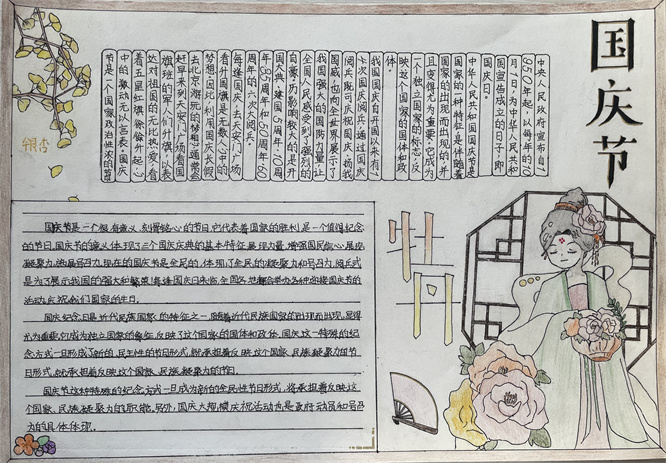 国庆节
中央人民政府宣布自1
950年起,以每年的10
月1日,为中华人民共和
国宣告成立的日子,即
国庆日。
中华人民共和国国庆节是
国家的一种特征,是伴随着
国家的出现而出现的,并
且变得尤为重要。它成为
一个独立国家的标志,反
映这个国家的国体和政
体。
我国国庆自开国以来有1
4次国庆阅兵,通过国庆
阅兵既可庆祝国庆、扬我
国威,也向全世界展示了
我国强大的国防力量,让
全国人民感受到了强烈的
自豪。历影响较大的是开
国大典、建国5周年、10周
年、35周年和50周年、60
周年的六次大阅兵。
每逢国庆,去天安门广场
看升国旗是无数人心中的
梦想,可利用国庆长假
去北京游玩的梦想,通常会
赶早来到天安门广场看国
旗班的军人们升旗,以表
达对祖国的无比热爱,看
着五星红旗冉冉升起,心
中的激动无以言表。国庆
节是一个国家政治性浓的节
银杏
牡丹
国庆节是一个很有意义、刻骨铭心的节日,它代表着国家的胜利,是一个值得纪念
的节日。国庆节的意义体现了三个国庆庆典的基本特征,展现力量,增强国民信心,展现
凝聚力,发扬号召力。现在的国庆节是全民的,体现了全民的凝聚力和号召力,阅兵式
是为了展示我国的强大和繁荣!每逢国庆日来临,全国各地都会举办各种迎接国庆节的
活动,庆祝我们国家的生日。
国庆纪念日是近代民族国家的特征之一,随着近代民族国家的出现而出现,显得
尤为重要。它成为独立国家的象征,反映了这个国家的国体和政体。国庆这一特殊的纪
念方式一旦形成了新的、民主性的节日形式,就承担着反映这个国家、民族凝聚力的节
日形式,就承担着反映这个国家、民族凝聚力的节日。
国庆节这种特殊的纪念方式一旦成为新的全民性节日形式,将承担着反映这
个国家、民族凝聚力的职能。另外,国庆大规模庆祝活动也是政府动员和号召
力的具体体现。